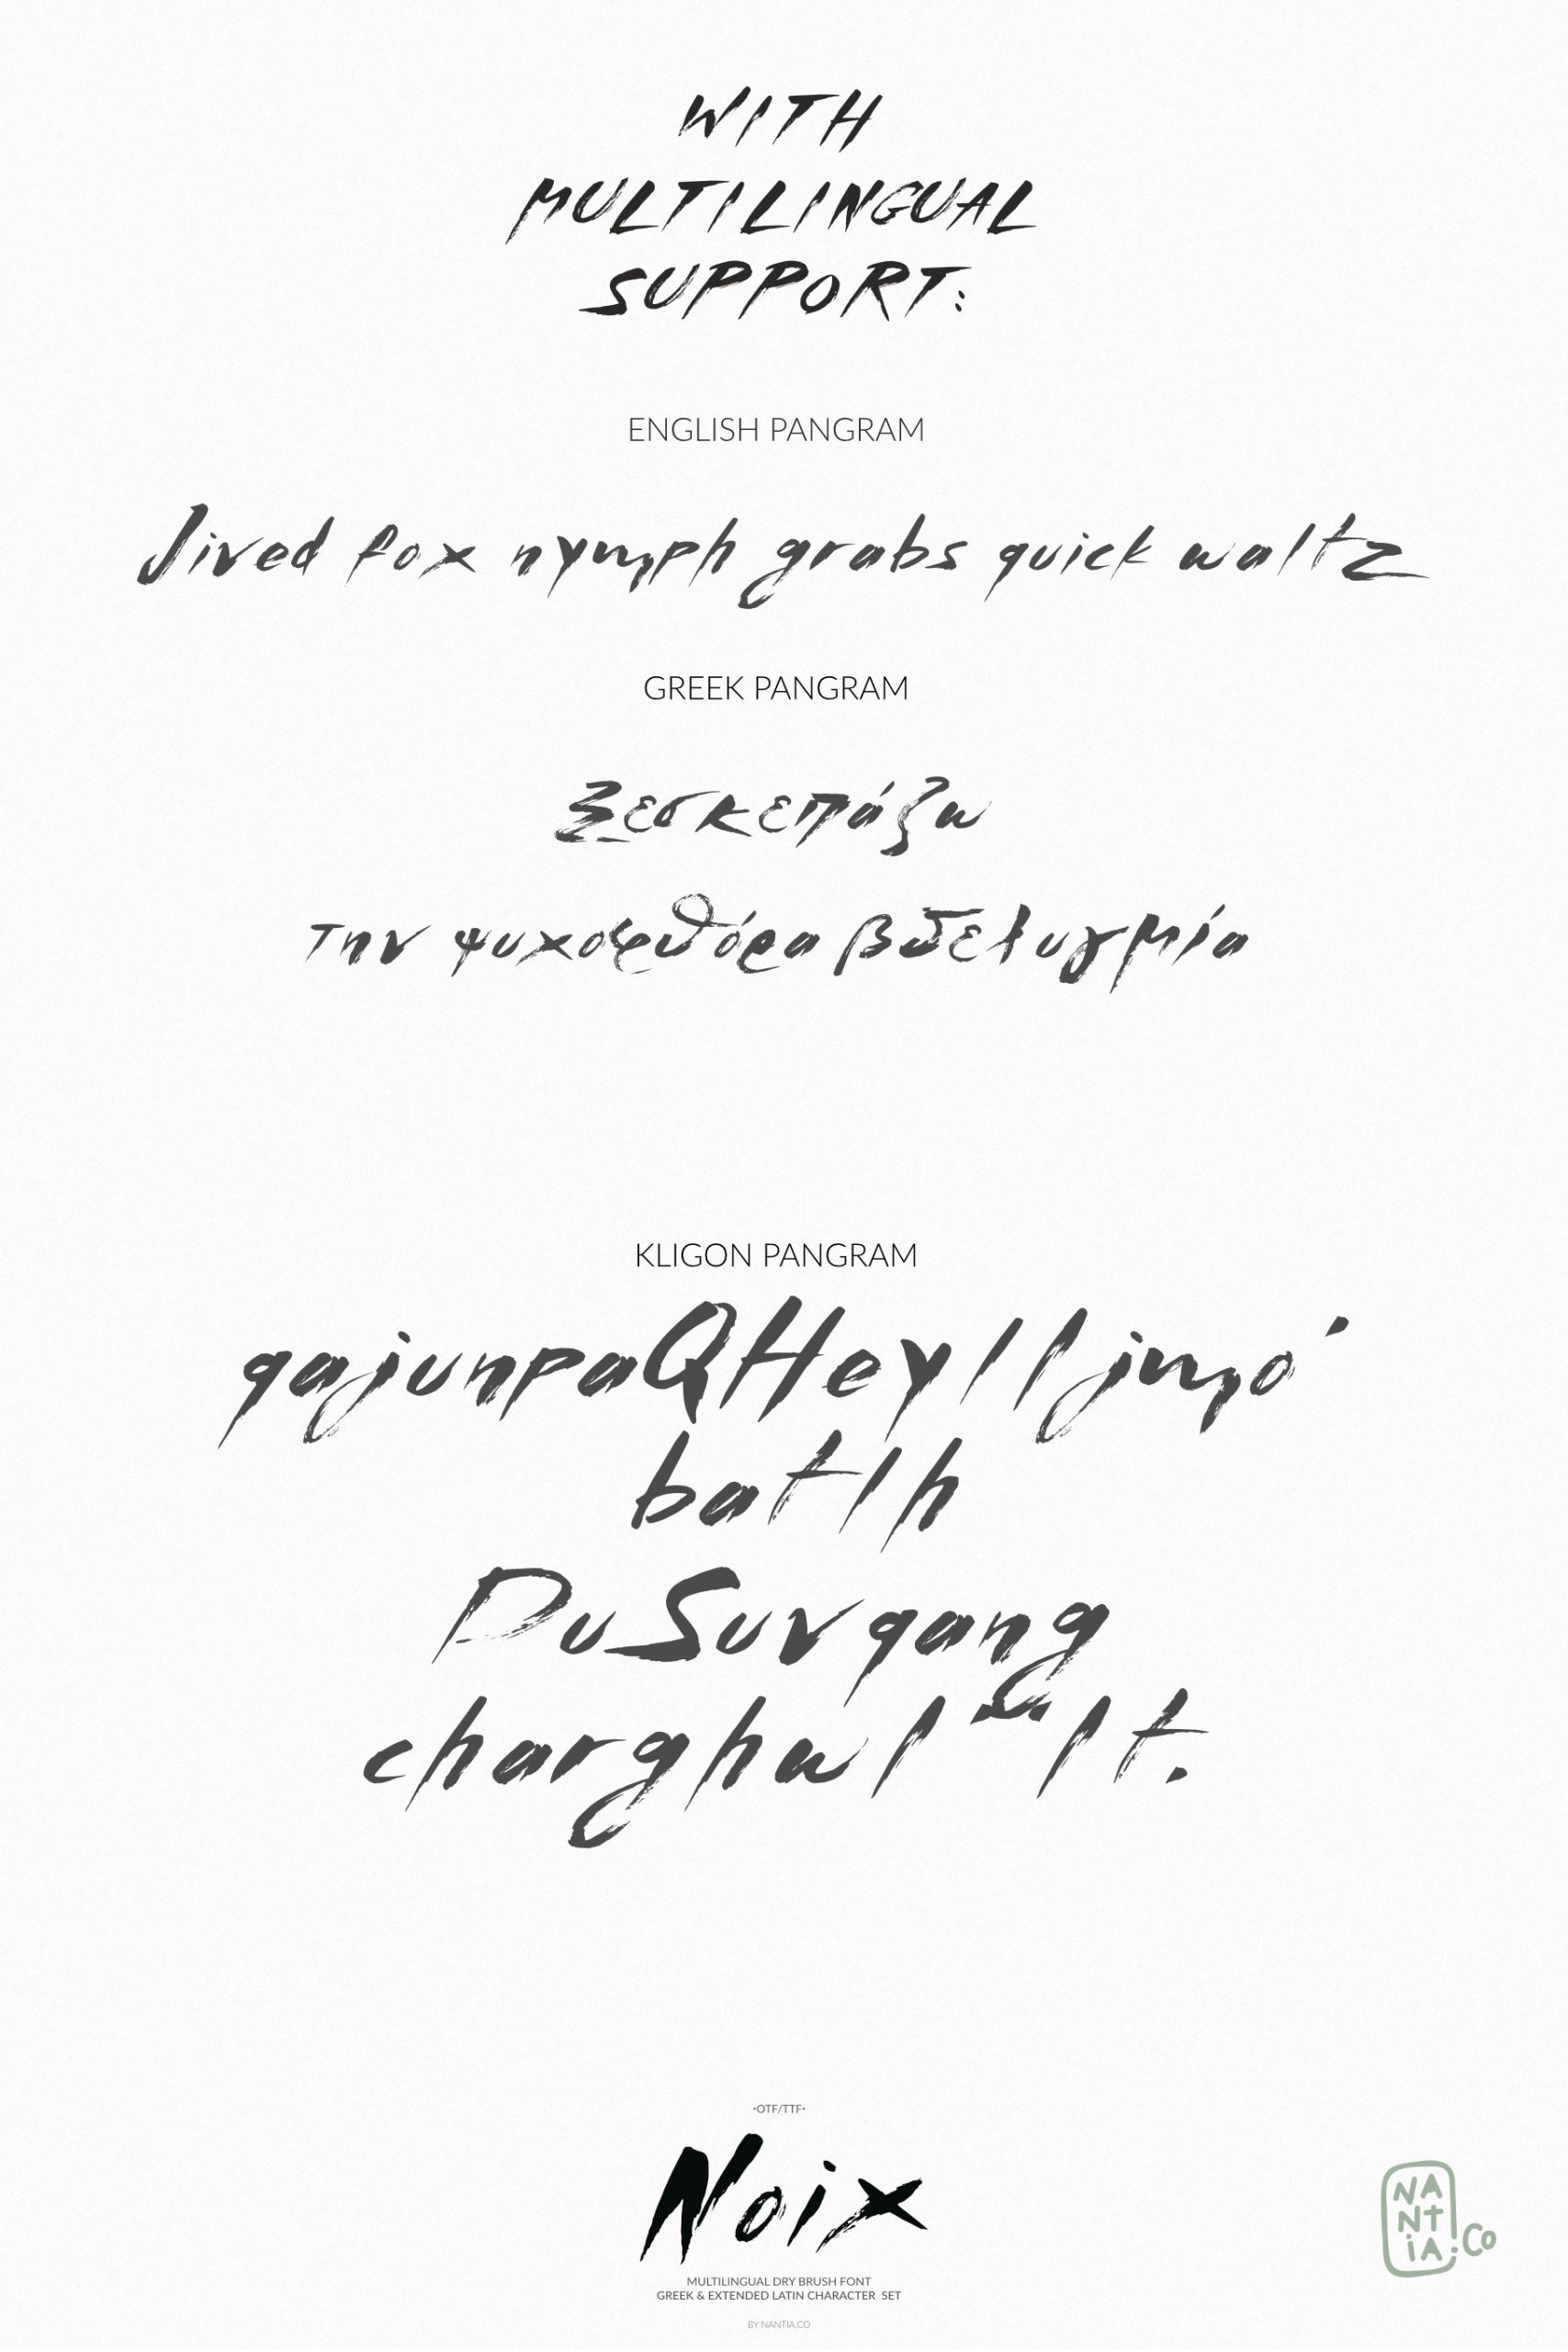 WITH
MULTILINGUAL
SUPPORT:
ENGLISH PANGRAM
Jived fox nymph grabs quick waltz
GREEK PANGRAM
Ξεσκεπάζω
την ψυχοφθόρα βδελυγμία
KLIGON PANGRAM
qajunpaQHeylIjmo'
batlh
DuSuvqang
charghwI'‘It.
•OTF/TTF•
Noix
MULTILINGUAL DRY BRUSH FONT
GREEK & EXTENDED LATIN CHARACTER SET
BY NANTIA.CO
NA
NT
iA.Co